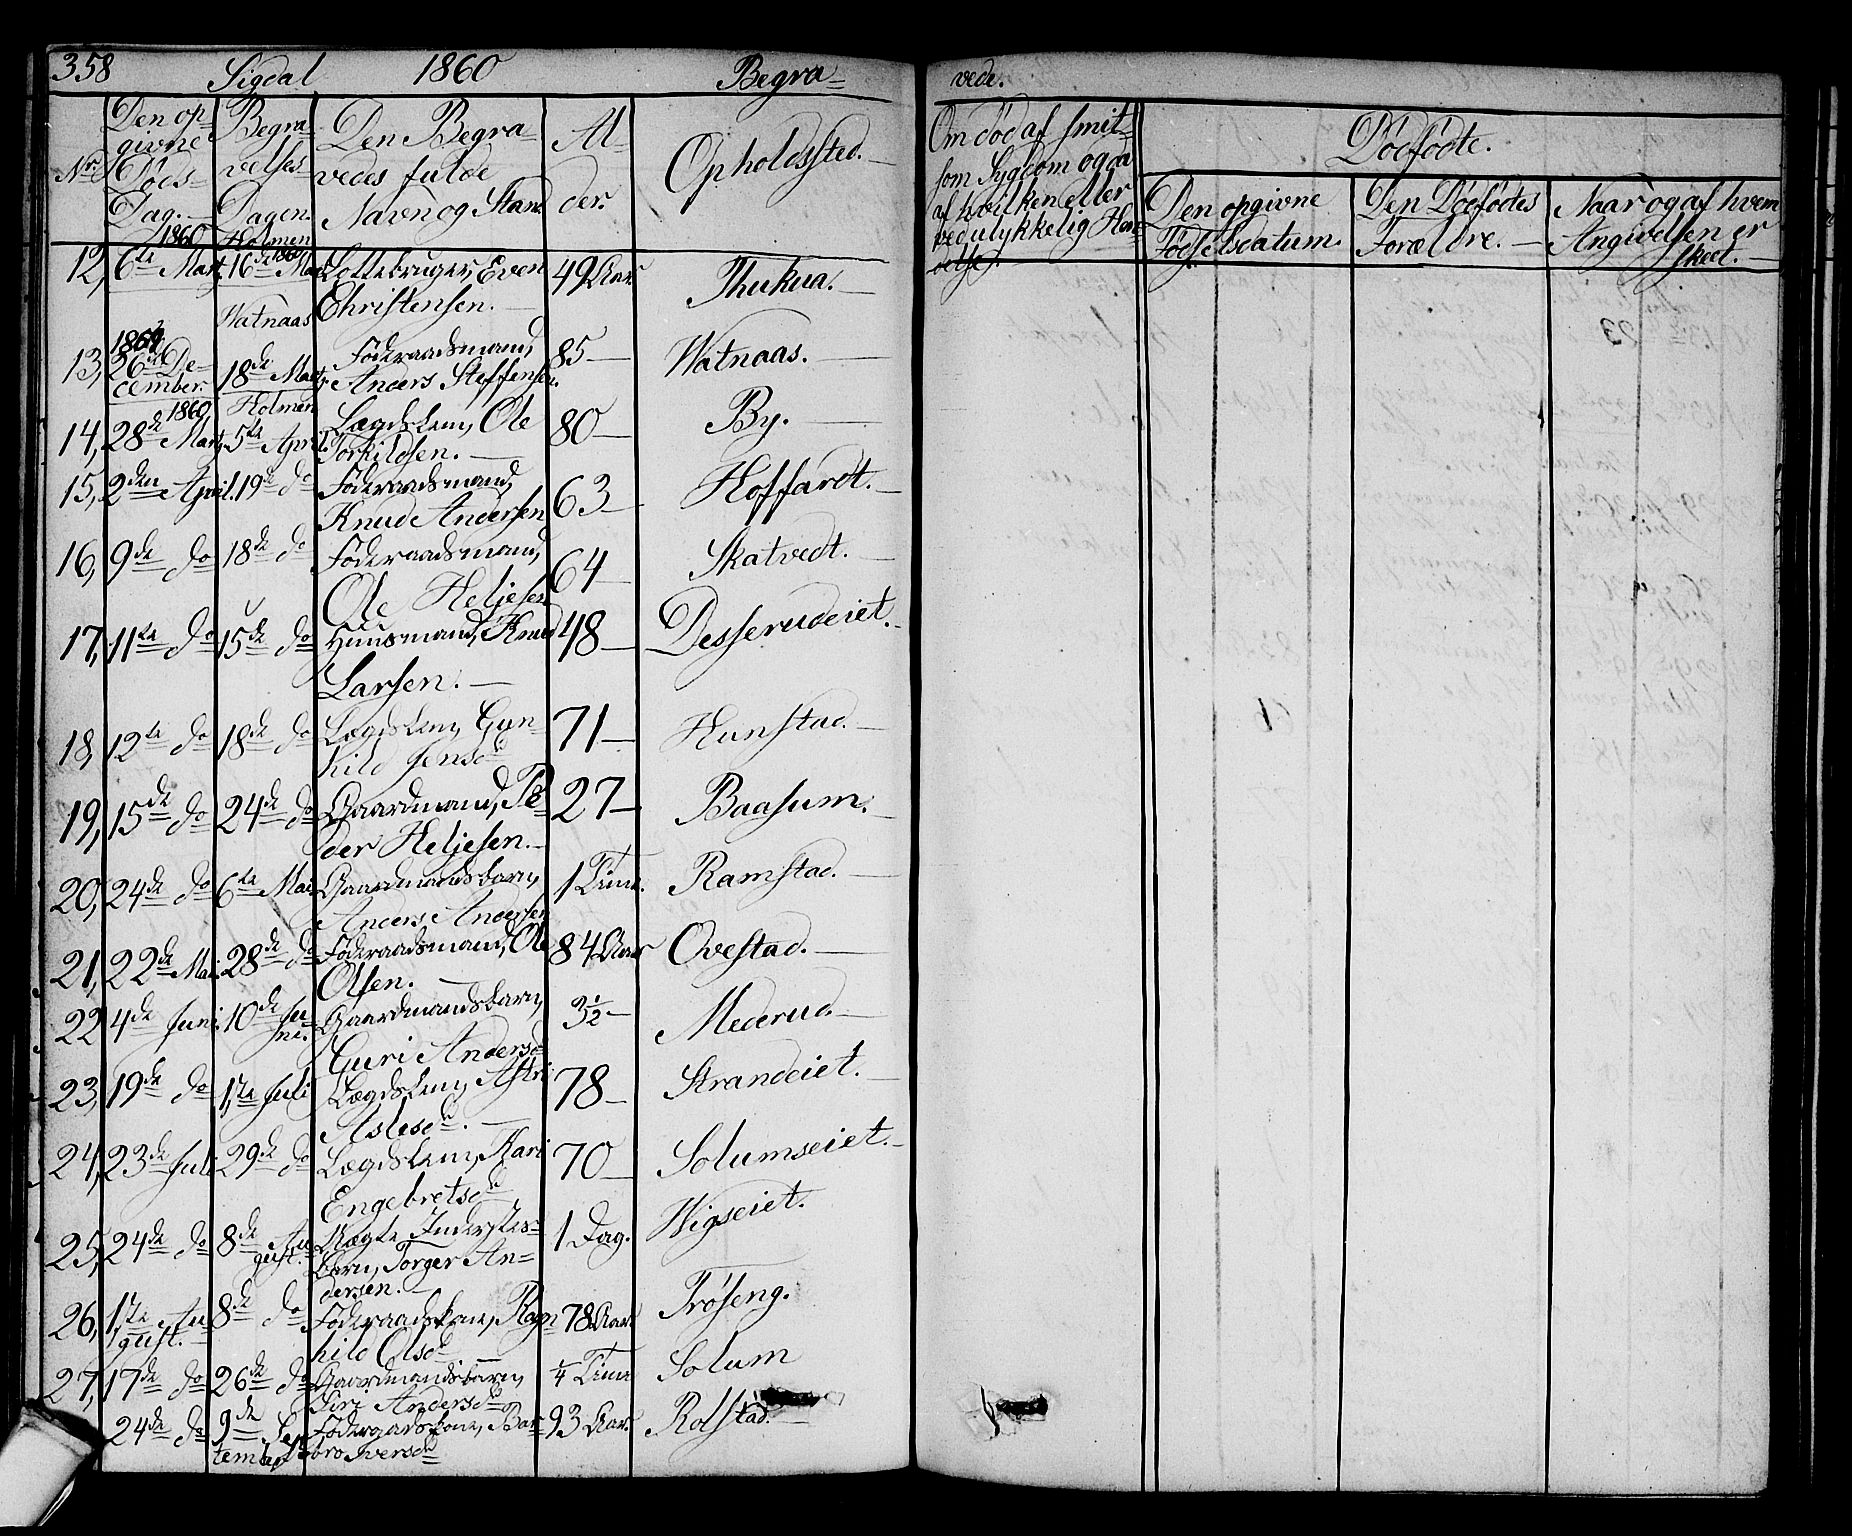 358 Sigdal 1860 Begra=
vede.
Nr. Den op= givne Døds= Dag.
Begra= velses Dagen.
Den Begra= vedes fulde Navn og Stand
Al= der.
Opholdssted.
Om død af smit= som Sygdom og da af hvilken eller ved ulykkelig Hæn= delse.
Dødfødte.
Den opgivne Fødselsdatum.
Den Dødfødtes Forældre.
Naar og af hvem Angivelsen er skeet.
1860 Holmen 1860
12, 6te Mart 16de Mart Even 49 Aar Thukua.
Christensen.
Watnaas
13, 26de De= cember. 18de Mart Føderaadsmand, Anders Steffensen. 85 Watnaas.
1860 Holmen
14, 28de Mart 5te April Lægdslem, Ole Torkildsen. 80 By.
15, 2den April. 19de do Føderaadsmand, Knud Andersen 63 Hoffardt.
16, 9de do 18de do Føderaadsmand, Ole Heljesen 64 Skatvedt.
17, 11te do 15de do Huusmand, Knud Larsen. 48 Desserudeiet.
18, 12te do 18de do Lægdslem, Gun= hild Jensd 71 Hunstad.
19, 15de do 24de do Gaardmand, Pe= der Heljesen. 27 Baasum.
20, 24de do 6te Mai Gaardmandsbarn, Anders Andersen 1 Time. Ramstad.
21, 22de Mai 28de do Føderaadsmand, Ole Olsen. 84 Aar Ovestad.
22 4de Juni. 10de Ju= ni. Gaardmandsbarn, Guri Andersd 3½ Mederud.
23, 19de do 1ste Juli Lægdslem, Astri Aslesd. 78 Strandeiet.
24, 23de Juli 29de do Lægdslem, Kari Engebretsd 70 Solumseiet.
25, 24de do 8de Au= gust. Uægte Inderstes= barn, Torger An= dersen. 1 Dag. Wigseiet.
26, 1ste Au= gust. 8de do Føderaadskone, Ragn hild Olsd 78 Aar Trøseng.
27, 17de do 26de do Gaardmandsbarn, Siri Andersd ¼ Time Solum
24de do 9de Sep tember Føderaadskone, Bar= bro Iversd 93 Aar. Rolstad.